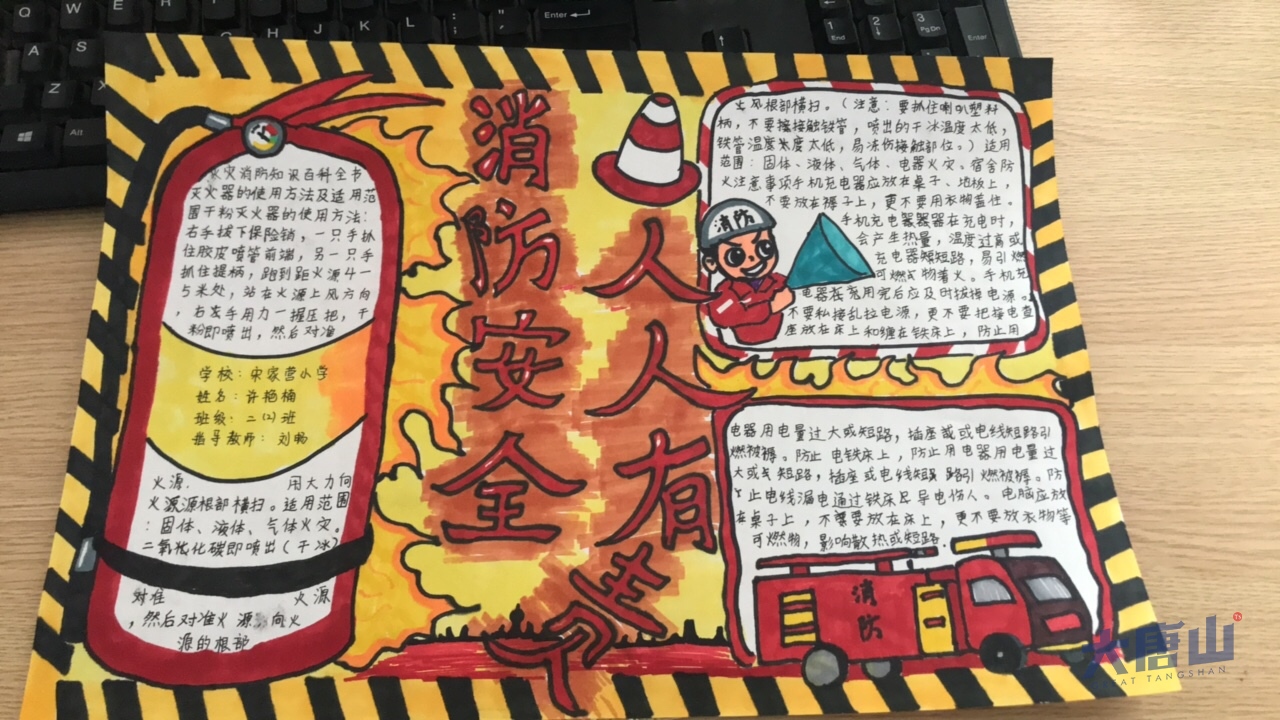 消防安全
人人有责
灭火消防知识百科全书
灭火器的使用方法及适用范
围干粉灭火器的使用方法：
右手拔下保险销，一只手抓
住胶皮喷管前端，另一只手
抓住提柄，跑到距火源4一
5米处，站在火源上风方向
，右友手用力一握压把，干
粉即喷出，然后对准
学校：宋家营小学
姓名：许艳楠
班级：二(2)班
指导教师：刘畅
火源. 用大力向
火源源根部横扫。适用范围
：固体、液体、气体火灾。
二氧化碳即喷出(干冰)
对准 火源
，然后对准火源 向火
源的根部
根部横扫。(注意：要抓住喇叭塑料
柄，不要接触铁管，喷出的干冰温度太低，
铁管温度太低，易冻伤接触部位。)适用
范围：固体、液体、气体、电器火灾。宿舍防
火注意事项手机充电器应放在桌子、地板上，
不要放在褥子上，更不要用衣物盖住。
手机充电器器在充电时，
会产生热量，温度过高或
充电器短路，易引燃
可燃 物着火。手机充
电器在充用完后应及时拔掉电源。
不要私接乱拉电源，更不要把接电查
座放在床上和缠在铁床上，防止用
电器用电量过大或短路，插座或或电线短路引
燃被褥。防止 电铁床上，防止用电器用电量过
大或 短路，插座或电线短 路引燃被褥。防
止电线漏电通过铁床足导电伤人。电脑应放
在桌子上，不要放在床上，更不要放衣物等
可燃物，影响散热或短路
消防
消防
大唐山
AT TANGSHAN
Q
W
E
A
S
Z
H
J
K
L
Alt
Enter
1
End
2
3
PgDn
Enter